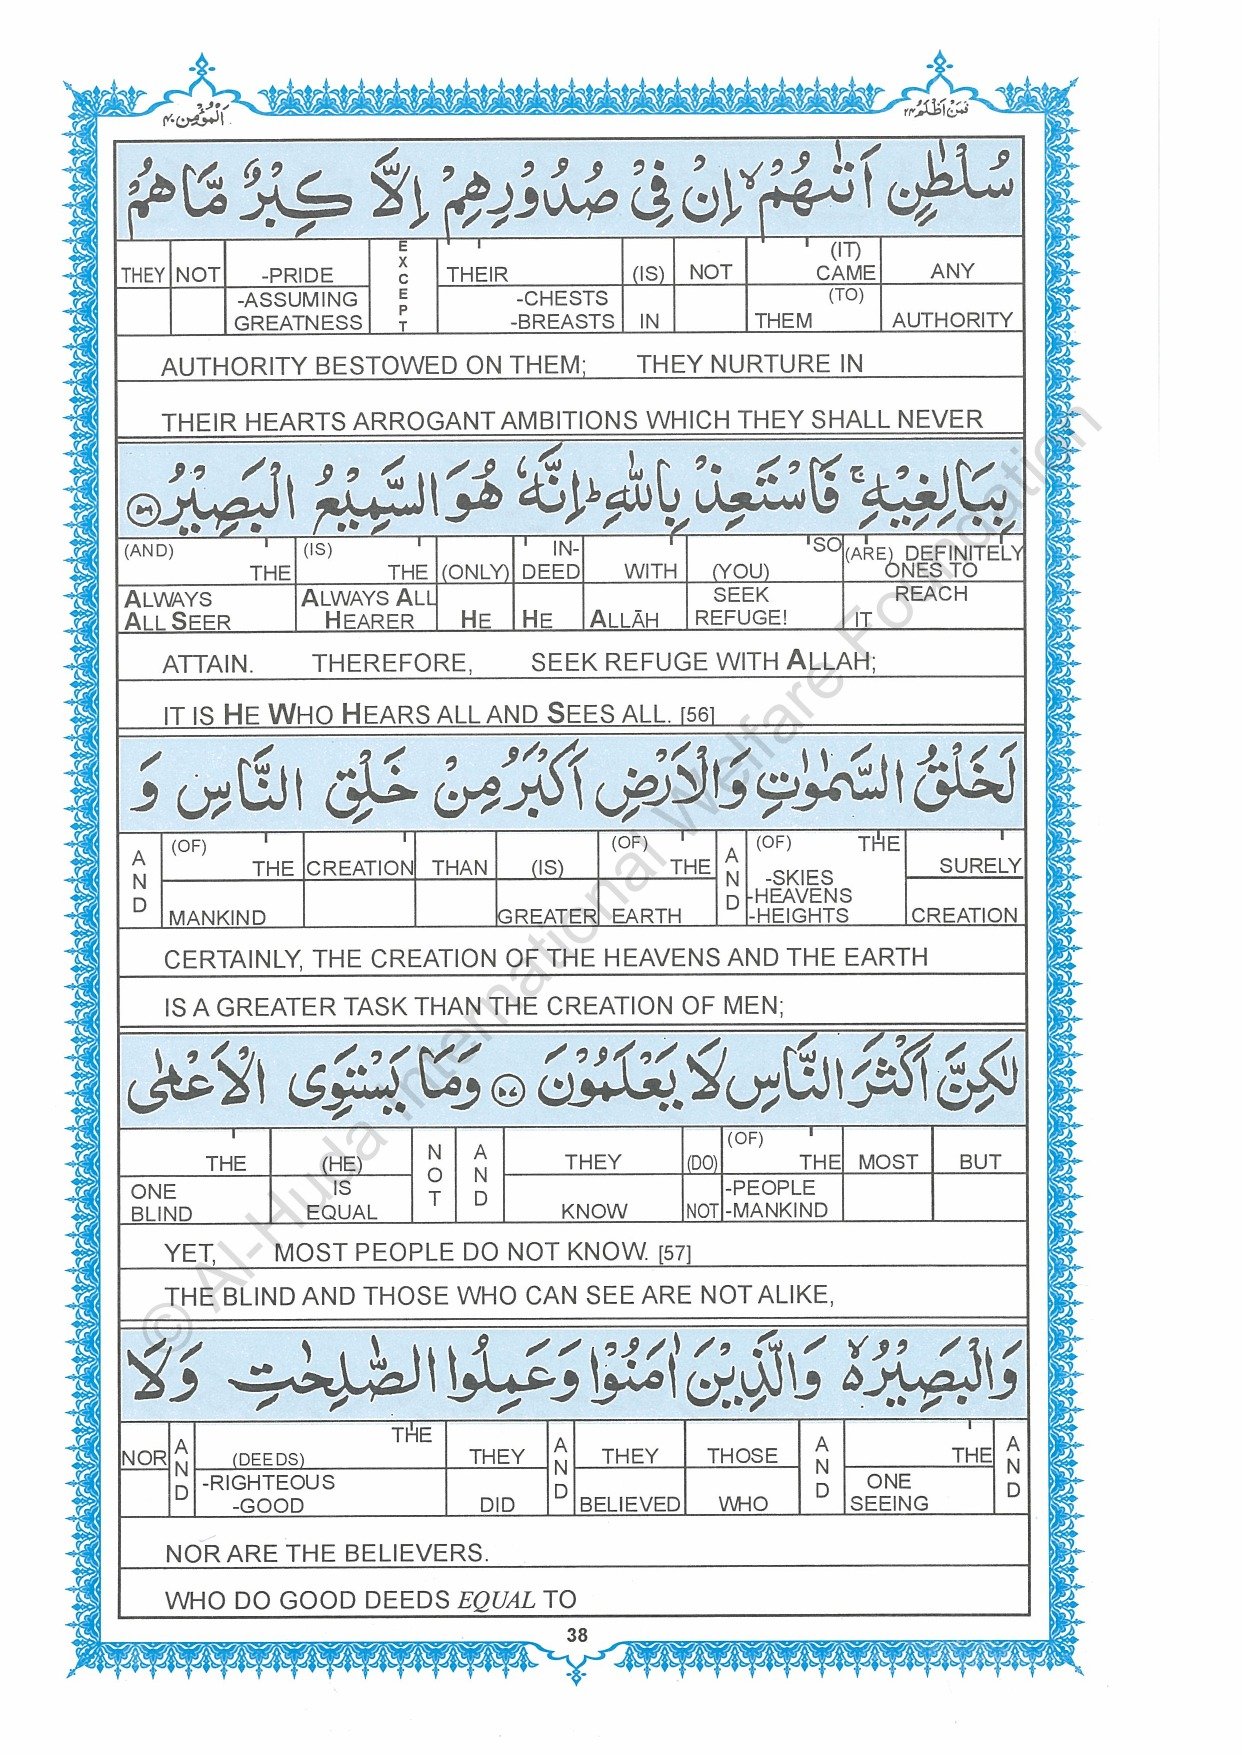 اَلْمُؤْمِن ٤٠ فَمَنْ اَظْلَمُ ٢٤
سُلْطٰنٍ اَتٰىهُمْ ۙ اِنْ فِیْ صُدُوْرِهِمْ اِلَّا كِبْرٌ مَّا هُمْ
THEY NOT -PRIDE EXCEPT THEIR (IS) NOT (IT) CAME ANY
-ASSUMING GREATNESS -CHESTS -BREASTS IN THEM (TO) AUTHORITY
AUTHORITY BESTOWED ON THEM; THEY NURTURE IN
THEIR HEARTS ARROGANT AMBITIONS WHICH THEY SHALL NEVER
بِبَالِغِیْهِ ۚ فَاسْتَعِذْ بِاللّٰهِ ؕ اِنَّهٗ هُوَ السَّمِیْعُ الْبَصِیْرُ ﴿۵۶﴾
(AND) THE (IS) THE (ONLY) IN-DEED WITH (YOU) SO (ARE) DEFINITELY ONES TO
ALWAYS ALL SEER ALWAYS ALL HEARER HE HE ALLĀH SEEK REFUGE! REACH IT
ATTAIN. THEREFORE, SEEK REFUGE WITH ALLAH;
IT IS HE WHO HEARS ALL AND SEES ALL. [56]
لَخَلْقُ السَّمٰوٰتِ وَالْاَرْضِ اَكْبَرُ مِنْ خَلْقِ النَّاسِ وَ
AND (OF) THE CREATION THAN (IS) (OF) THE AND (OF) THE SURELY
MANKIND GREATER EARTH -SKIES -HEAVENS -HEIGHTS CREATION
CERTAINLY, THE CREATION OF THE HEAVENS AND THE EARTH
IS A GREATER TASK THAN THE CREATION OF MEN;
لٰكِنَّ اَكْثَرَ النَّاسِ لَا یَعْلَمُوْنَ ﴿۵۷﴾ وَمَا یَسْتَوِی الْاَعْمٰى
THE (HE) NOT AND THEY (DO) (OF) THE MOST BUT
ONE BLIND IS EQUAL KNOW NOT -PEOPLE -MANKIND
YET, MOST PEOPLE DO NOT KNOW. [57]
THE BLIND AND THOSE WHO CAN SEE ARE NOT ALIKE,
وَالْبَصِیْرُ ۙ وَالَّذِیْنَ اٰمَنُوْا وَعَمِلُوا الصّٰلِحٰتِ وَلَا
NOR AND (DEEDS) THE THEY AND THEY THOSE AND THE AND
-RIGHTEOUS -GOOD DID BELIEVED WHO ONE SEEING
NOR ARE THE BELIEVERS.
WHO DO GOOD DEEDS EQUAL TO
38
© Al-Huda International Welfare Foundation